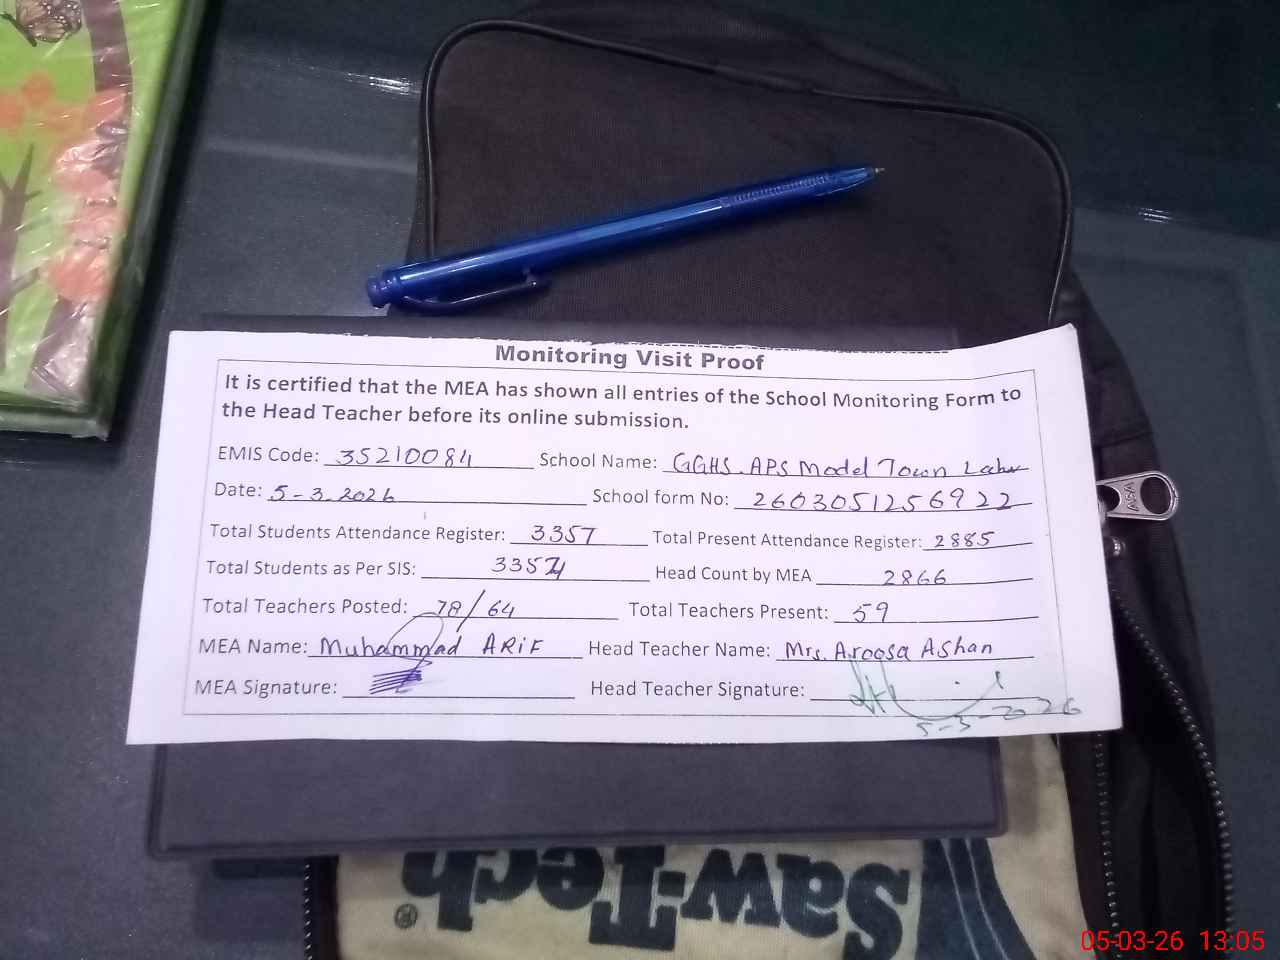 Monitoring Visit Proof
It is certified that the MEA has shown all entries of the School Monitoring Form to
the Head Teacher before its online submission.
EMIS Code: 35210084 School Name: GGHS. APS Model Town Lahr
Date: 5-3-2026 School form No: 2603051256922
Total Students Attendance Register: 3357 Total Present Attendance Register: 2885
Total Students as Per SIS: Head Count by MEA 2866
Total Teachers Posted: 78/64 Total Teachers Present: 59
MEA Name: Muhammad ARIF Head Teacher Name: Mrs. Aroosa Ashan
MEA Signature: Head Teacher Signature:
5-3-2026
Saw-Tech®
05-03-26 13:05